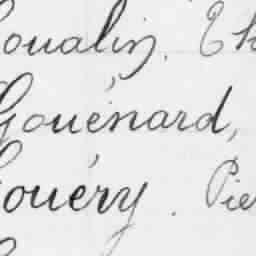 Goualin. Th
Gouénard,
Gouéry. Pie